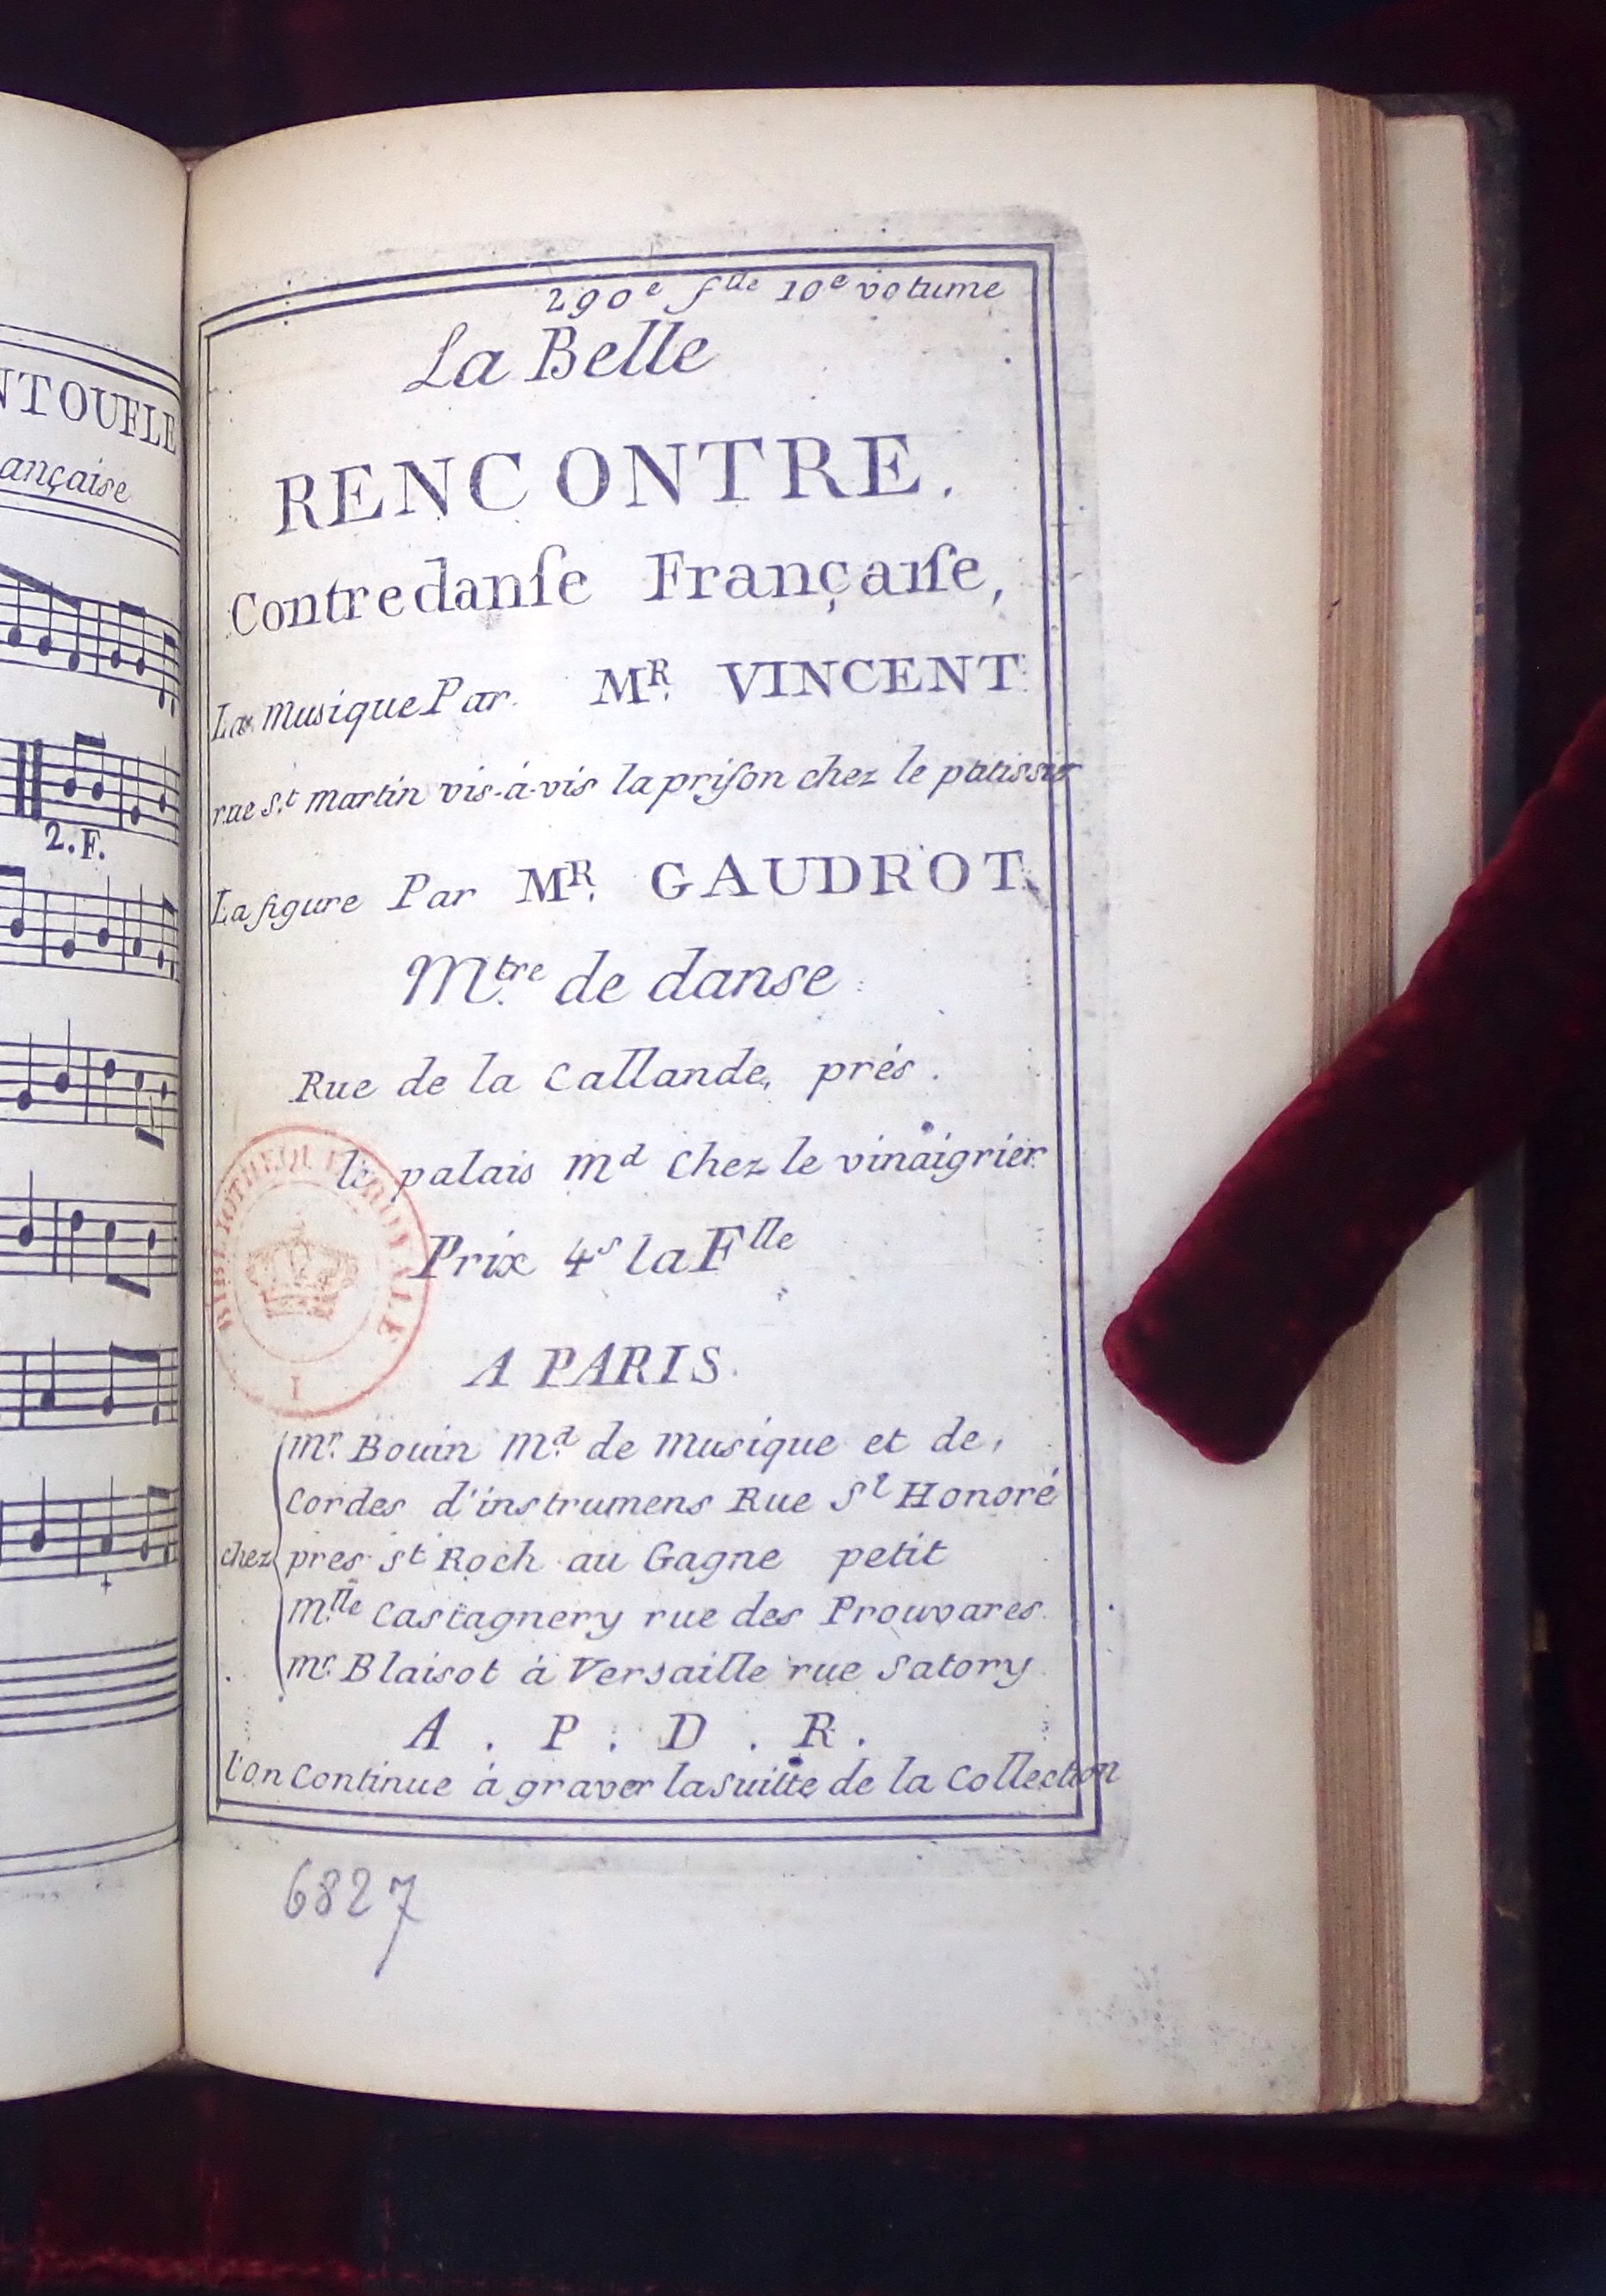 NTOUFLE
ançaise
2.F.
290e flle 10e volume
La Belle
RENCONTRE.
Contredanſe Françaiſe,
La Musique Par MR. VINCENT
rue St. Martin vis-à-vis la priſon chez le patissier
La figure Par MR. GAUDROT.
Mtre. de danse
Rue de la Callande, prés
le palais md Chez le vinaigrier
Prix 4s la Flle
BIBLIOTHEQUE ROYALE
I
A PARIS.
mr. Bouin Md. de Musique et de,
Cordes d'instrumens Rue St Honoré
chez pres St Roch au Gagne petit
mlle Castagnery rue des Prouvares
mr. Blaisot à Versaille rue Satory
A. P. D. R.
l'on Continue à graver la Suitte de la Collection
6827